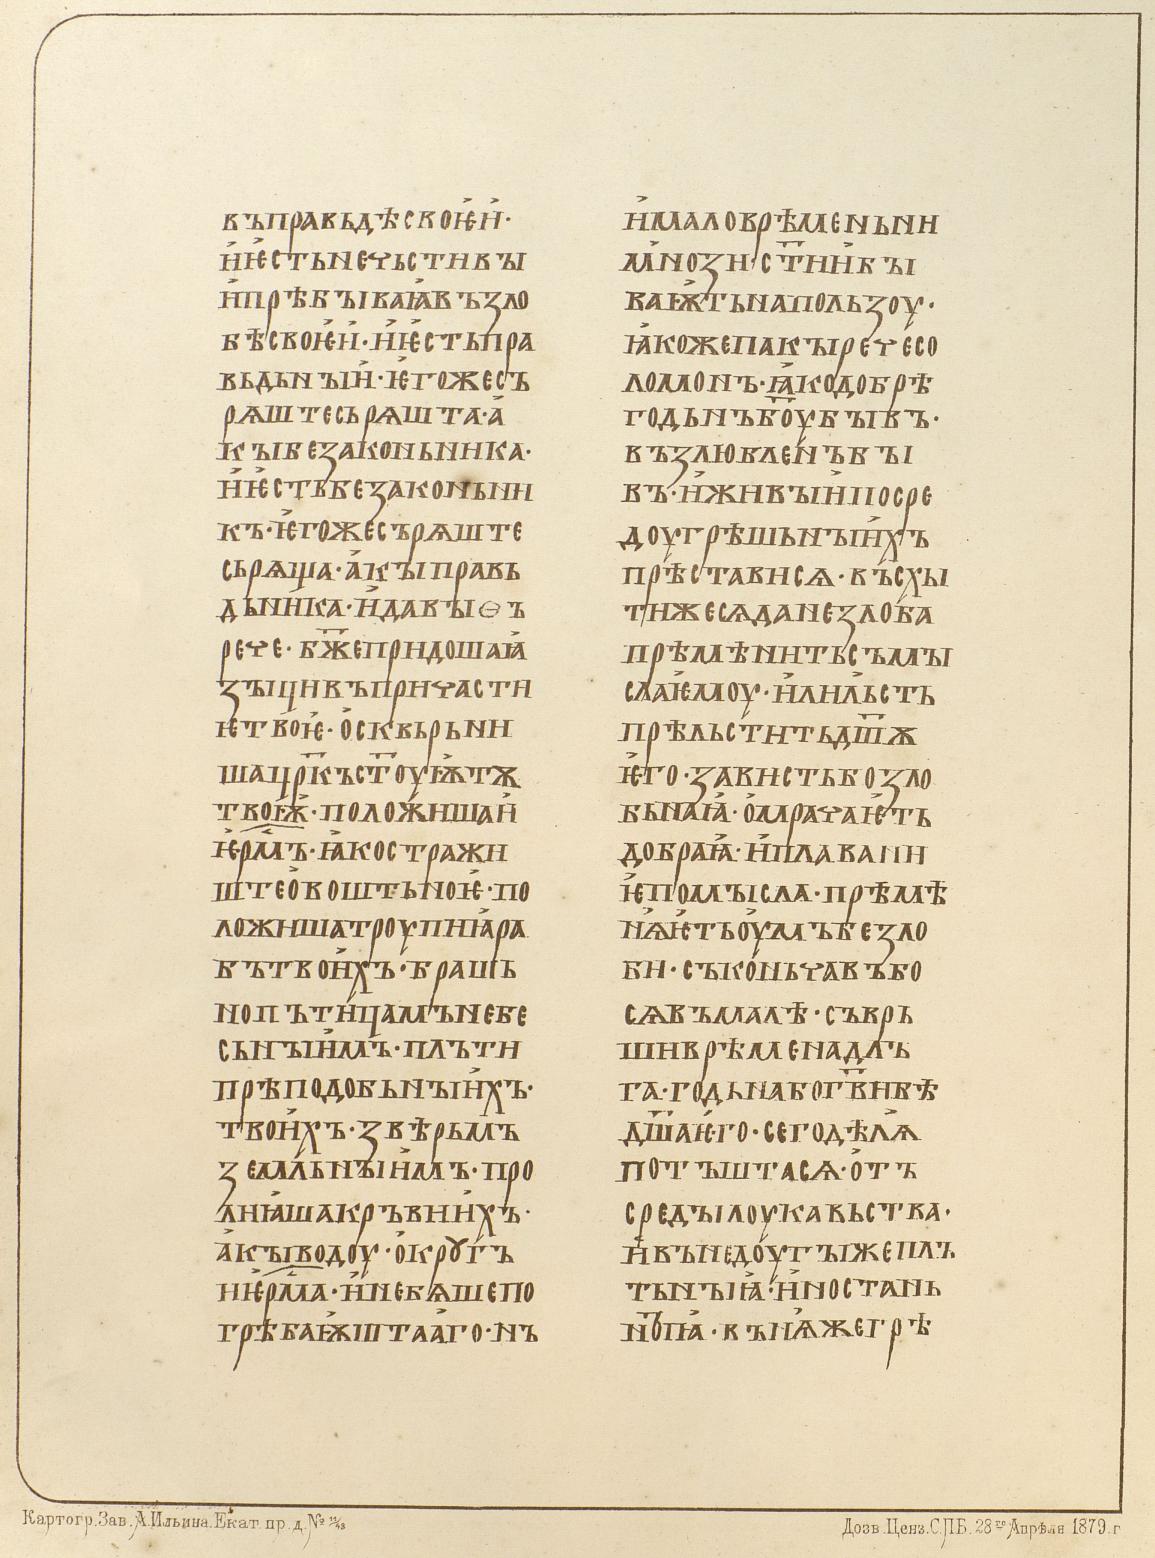 въправьдѣсвоѥи·
иѥстьнечьстивъι
ипрѣбъιваꙗвъзло
бѣсвоѥи·иѥстьпра
вьдьнъιи·ѥгожесъ
рѧштесърѧшта·а
къιбезаконьника·
иѥстьбезаконьни
къ·ѥгожесърѧште
сьрѧща·акъιправь
дьника·идавъιѳъ
рече·бж҃епридошаꙗ
зъιцивъпричасти
ѥтвоѥ·осквьрьни
шацр҃къст҃оуѭтѫ
твоѭ·положишаи
ѥрм҃ъ·ꙗкостражи
штеовоштьноѥ·по
ложишатроупиꙗра
бътвоихъ·брашь
нопътицамънебе
сьнъιимъ·плъти
прѣподобьнъιихъ·
твоихъ·звѣрьмъ
земльнъιимъ·про
лиꙗшакръвиихъ·
акъιводоу·окрꙋгъ
иѥрм҃а·инебѧшепо
грѣбаѭштааго·нъ
ималоврѣменьни
мнозист҃иибъι
ваѭтьнапользоу·
ꙗкожепакъιречесо
ломонъ·ꙗкодобрѣ
годьнъб҃оубъιвъ·
възлюбленъбъι
въ·иживъιипосре
доугрѣшьнъιихъ
прѣстависѧ·въсхъι
тижесѧданезлоба
прѣмѣнитьсъмъι
слаѥмоу·илильсть
прѣльститьдш҃ѫ
ѥго·завистьбозло
бьнаꙗ·омрачаѥть
добраꙗ·иплавани
ѥпомъιсла·прѣмѣ
нѧѥтьоумъбезло
би·съконьчавъбо
сѧвъмалѣ·съврь
шиврѣменадлъ
га·годьнабогв҃ибѣ
дш҃аѥго·сегодѣлѧ
потъштасѧ·отъ
средъιлоукавьства·
ивънедоугъιжеплъ
тьнъιꙗ·иностань
но҃пꙗ·вънѧжегрѣ
Картогр. Зав. А. Ильина. Екат. пр. д. №
Дозв. Ценз. С.ПБ. 28го Апрѣля 1879. г